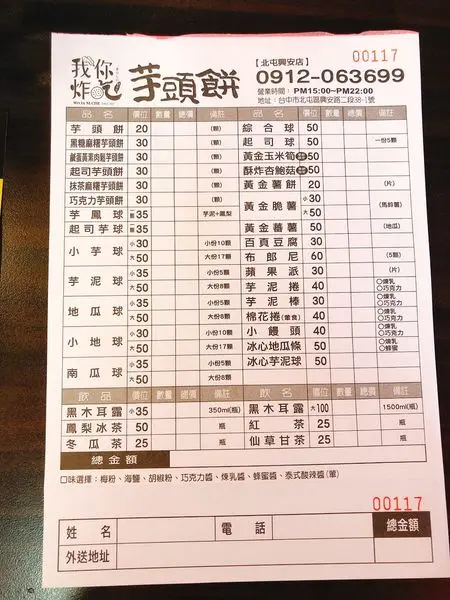 我你炸吃 芋頭餅
【北屯興安店】
00117
0912-063699
營業時間：PM15:00~PM22:00
地址：台中市北屯區興安路二段38-1號
品名 價位 數量 總價 備註 品名 價位 數量 總價 備註
芋頭餅 20 (顆) 綜合球 50
黑糖麻糬芋頭餅 30 (顆) 起司球 50 一份5顆
鹹蛋黃素肉鬆芋頭餅 30 (顆) 黃金玉米筍 50
起司芋頭餅 30 (顆) 酥炸杏鮑菇 50
抹茶麻糬芋頭餅 30 (顆) 黃金薯餅 20 (片)
巧克力芋頭餅 30 (顆) 黃金脆薯 小30 (馬鈴薯)
芋鳳球 35 芋泥+鳳梨 大50
起司芋球 35 黃金蕃薯 50 (地瓜)
小芋球 小30 小份10顆 百頁豆腐 30
大50 大份17顆 布郎尼 60 (5顆)
芋泥球 小35 小份5顆 蘋果派 30 (片)
大50 大份8顆 芋泥捲 40 ○煉乳 ○巧克力
地瓜球 小35 小份5顆 芋泥棒 30 ○煉乳 ○巧克力
大50 大份8顆 棉花捲(葷食) 40 ○煉乳 ○巧克力
小地球 小30 小份10顆 小饅頭 40 ○煉乳 ○蜂蜜
大50 大份17顆 冰心地瓜條 50
南瓜球 小35 小份5顆 冰心芋泥球 50
大50 大份8顆
飲品 價位 數量 總價 備註 飲名 價位 數量 總價 備註
黑木耳露 小35 350ml(瓶) 黑木耳露 大100 1500ml(瓶)
鳳梨冰茶 50 瓶 紅茶 25 瓶
冬瓜茶 25 瓶 仙草甘茶 25 瓶
總金額
口味選擇：梅粉、海鹽、胡椒粉、巧克力醬、煉乳醬、蜂蜜醬、泰式酸辣醬(葷)
00117
姓名 電話 總金額
外送地址